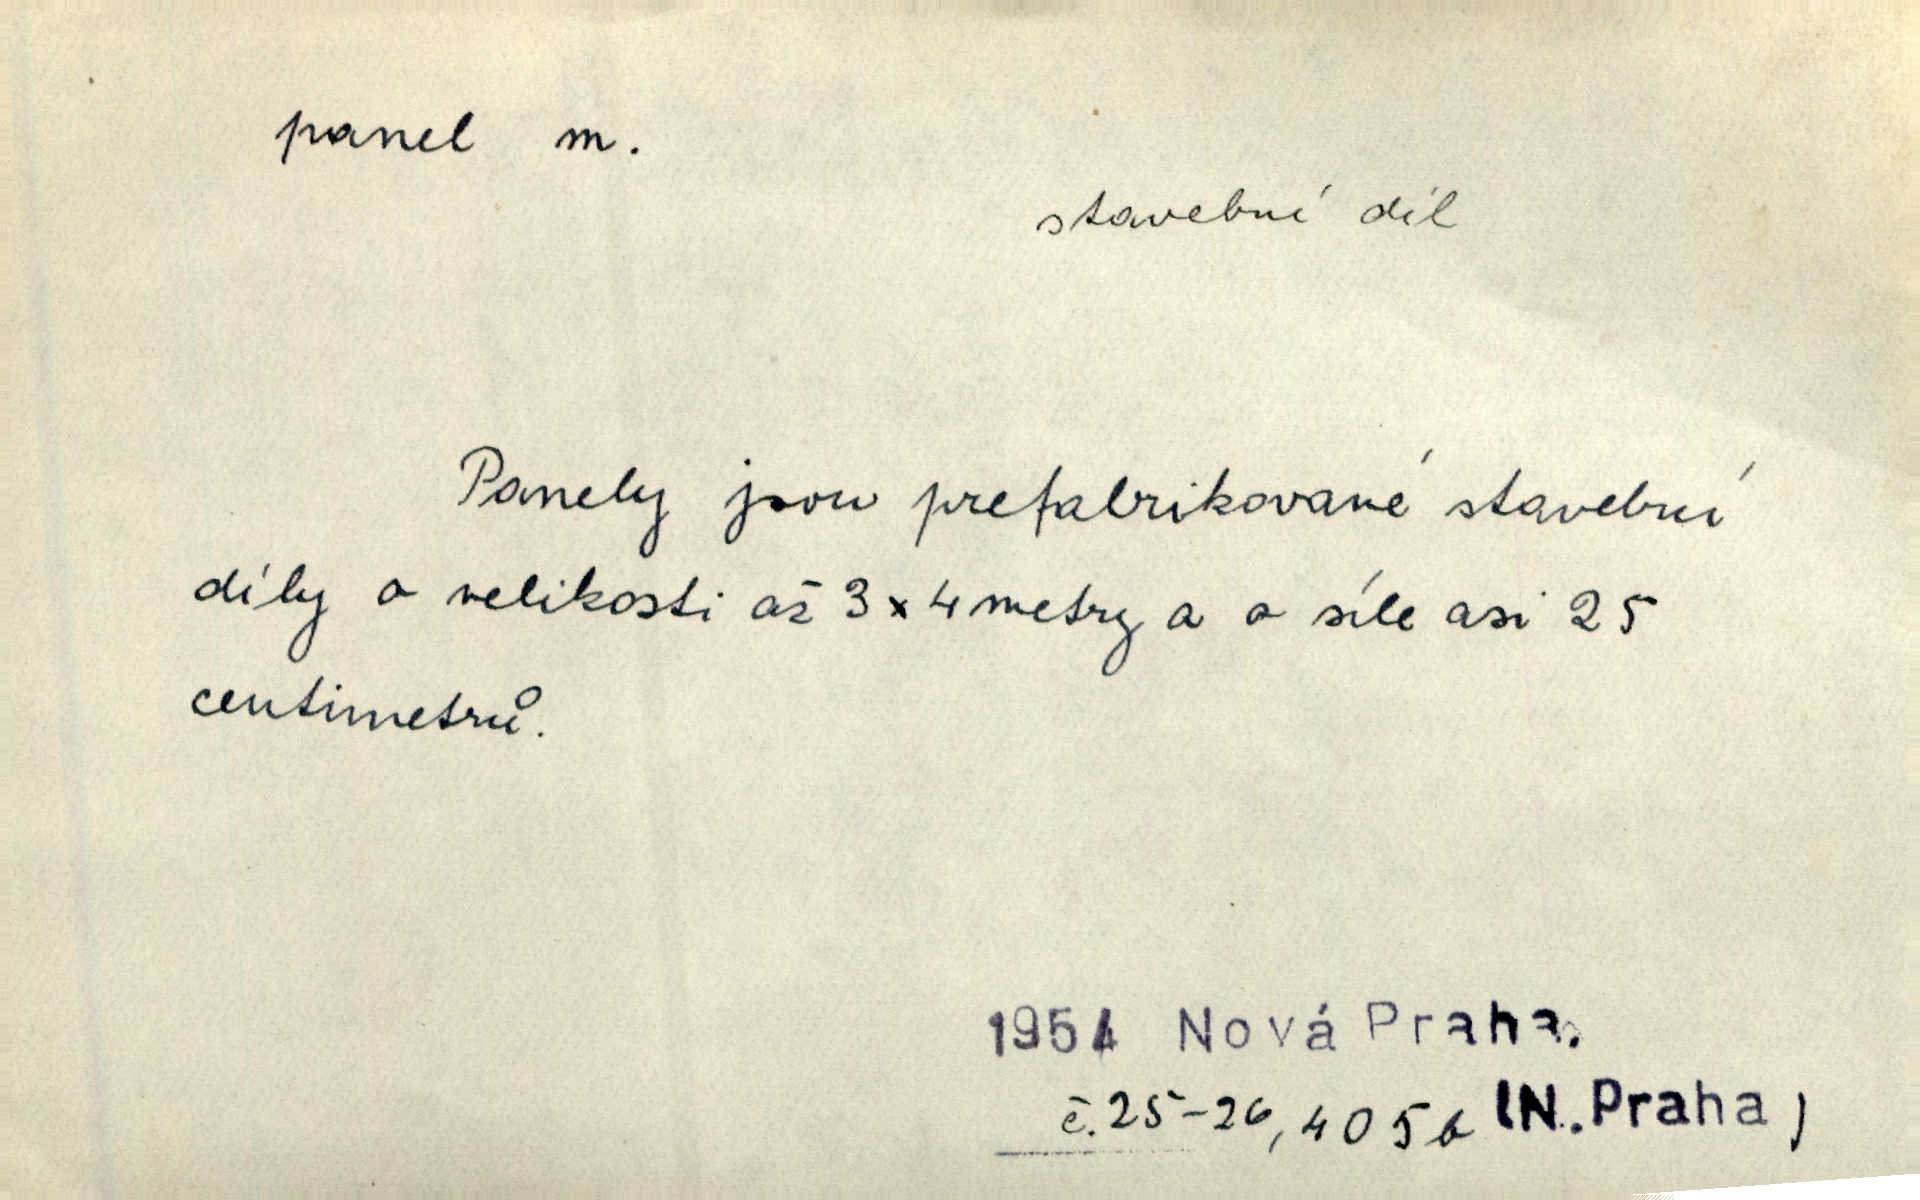 panel m.
stavební díl
Panely jsou prefabrikované stavební
díly o velikosti až 3 x 4 metry a o síle asi 25
centimetrů.
1954 Nová Praha.
č. 25-26, 405 b (N. Praha)